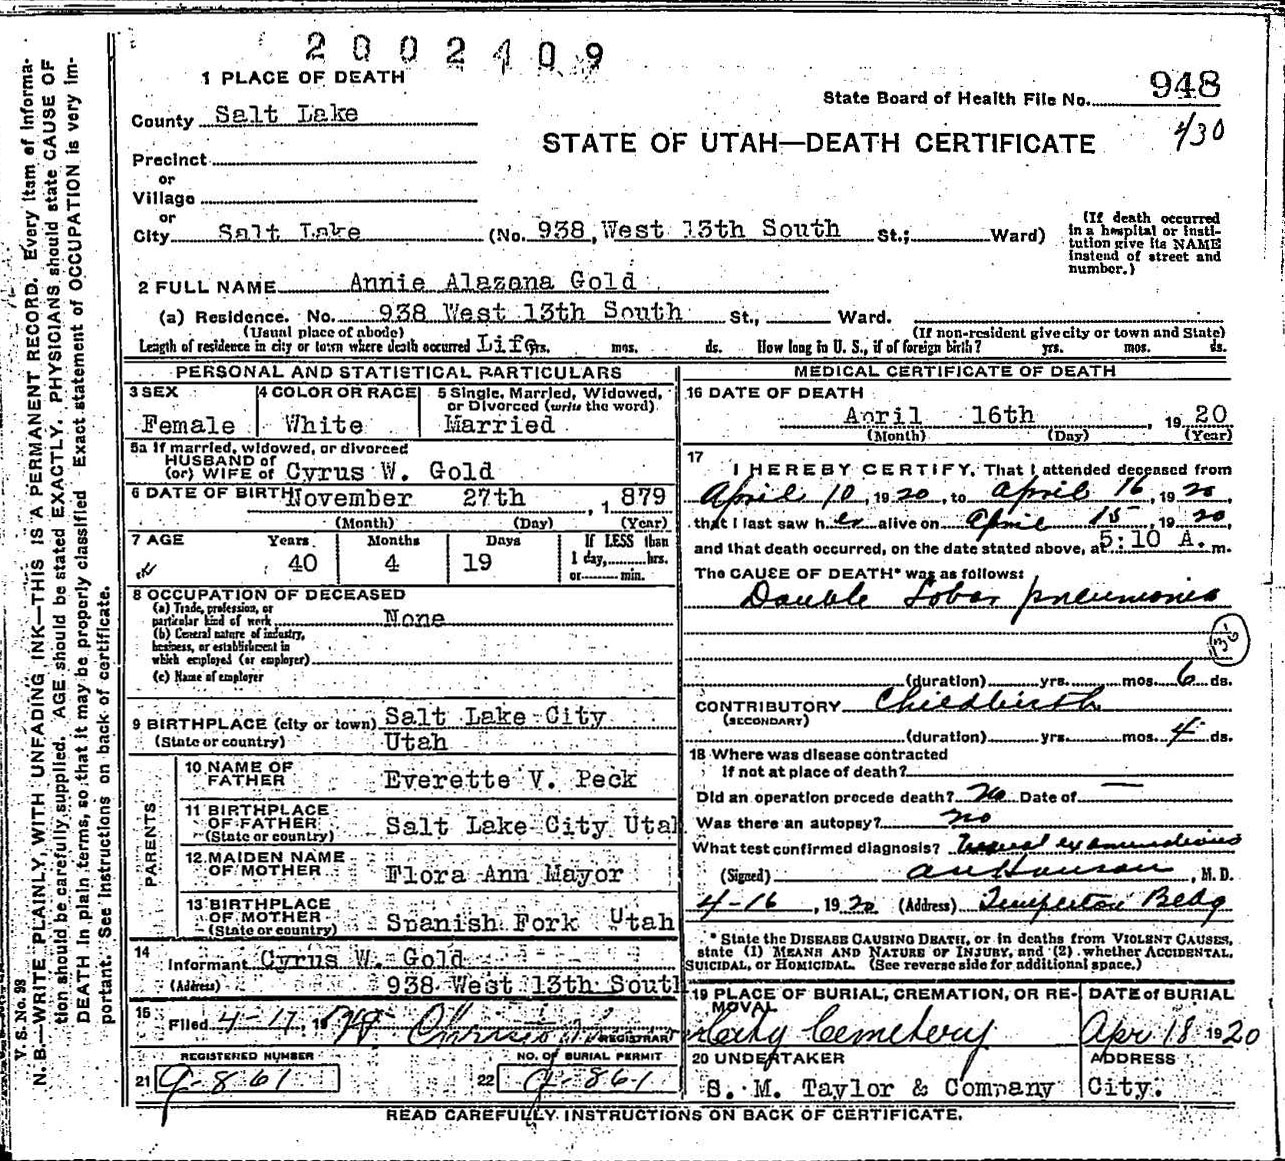 2002409
1 PLACE OF DEATH
State Board of Health File No. 948
430
County Salt Lake
STATE OF UTAH—DEATH CERTIFICATE
Precinct
or
Village
or
City Salt Lake (No. 938, West 13th South St.; Ward)
(If death occurred
in a hospital or insti-
tution give its NAME
instead of street and
number.)
2 FULL NAME Annie Alazona Gold
(a) Residence. No. 938 West 13th South St., Ward.
(Usual place of abode) (If non-resident give city or town and State)
Length of residence in city or town where death occurred Life yrs. mos. ds. How long in U. S., if of foreign birth? yrs. mos. ds.
PERSONAL AND STATISTICAL PARTICULARS
3 SEX
Female
4 COLOR OR RACE
White
5 Single, Married, Widowed,
or Divorced (write the word)
Married
5a If married, widowed, or divorced
HUSBAND of
(or) WIFE of Cyrus W. Gold
6 DATE OF BIRTH November 27th, 1879
(Month) (Day) (Year)
7 AGE Years Months Days If LESS than
40 4 19 1 day, hrs.
or min.
8 OCCUPATION OF DECEASED
(a) Trade, profession, or
particular kind of work None
(b) General nature of industry,
business, or establishment in
which employed (or employer)
(c) Name of employer
9 BIRTHPLACE (city or town) Salt Lake City
(State or country) Utah
PARENTS
10 NAME OF
FATHER Everette V. Peck
11 BIRTHPLACE
OF FATHER
(State or country) Salt Lake City Utah
12 MAIDEN NAME
OF MOTHER Flora Ann Mayor
13 BIRTHPLACE
OF MOTHER
(State or country) Spanish Fork Utah
14
Informant Cyrus W. Gold
(Address) 938 West 13th South
15
Filed 4-17, 19
REGISTRAR
REGISTERED NUMBER NO. OF BURIAL PERMIT
21 9-861 22 9-861
MEDICAL CERTIFICATE OF DEATH
16 DATE OF DEATH
April 16th, 1920
(Month) (Day) (Year)
17
I HEREBY CERTIFY, That I attended deceased from
April 10, 1920, to April 16, 1920,
that I last saw her alive on April 15, 1920,
and that death occurred, on the date stated above, at 5:10 A. m.
The CAUSE OF DEATH* was as follows:
Double Lobar pneumonia
(duration) yrs. mos. 6 ds.
CONTRIBUTORY Childbirth
(SECONDARY)
(duration) yrs. mos. 4 ds.
18 Where was disease contracted
If not at place of death?
Did an operation precede death? No Date of —
Was there an autopsy? no
What test confirmed diagnosis? examinations
(Signed) , M. D.
4-16, 1920 (Address) Templeton Bldg
* State the DISEASE CAUSING DEATH, or in deaths from VIOLENT CAUSES,
state (1) MEANS AND NATURE OF INJURY, and (2) whether ACCIDENTAL,
SUICIDAL, or HOMICIDAL. (See reverse side for additional space.)
19 PLACE OF BURIAL, CREMATION, OR RE-
MOVAL
City Cemetery
DATE of BURIAL
Apr 18 1920
20 UNDERTAKER
S. M. Taylor & Company
ADDRESS
City.
READ CAREFULLY INSTRUCTIONS ON BACK OF CERTIFICATE.
V. S. No. 98
N. B.—WRITE PLAINLY, WITH UNFADING INK—THIS IS A PERMANENT RECORD. Every item of informa-
tion should be carefully supplied. AGE should be stated EXACTLY. PHYSICIANS should state CAUSE OF
DEATH in plain terms, so that it may be properly classified. Exact statement of OCCUPATION is very im-
portant. See instructions on back of certificate.